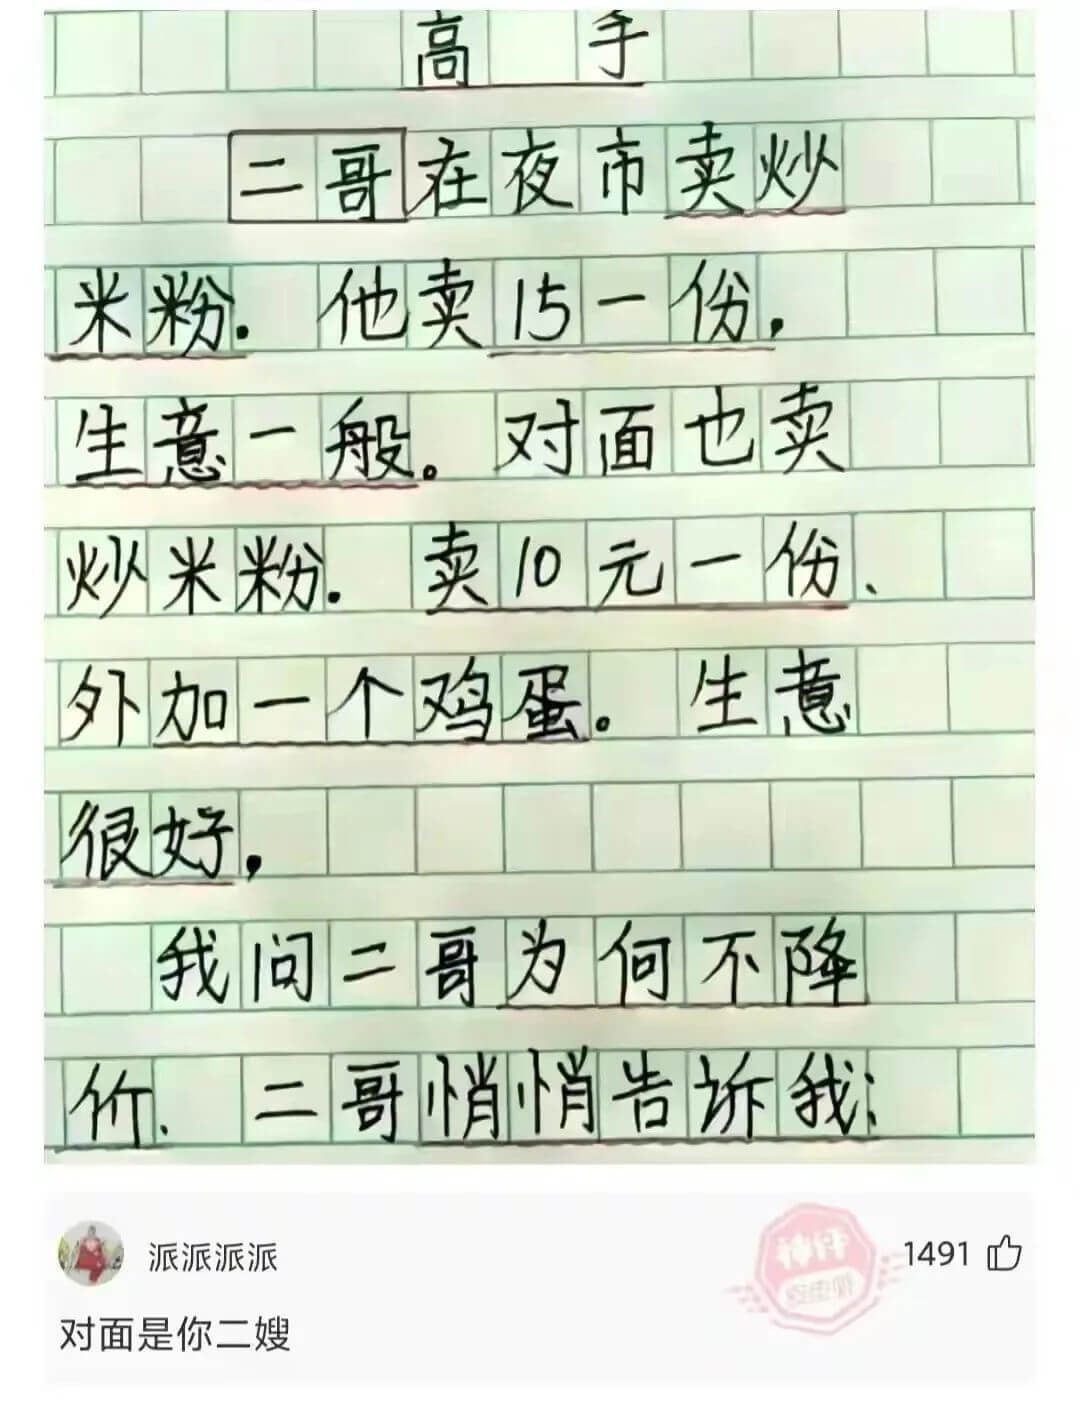 高 手
二哥在夜市卖炒
米粉. 他卖15一份,
生意一般。对面也卖
炒米粉. 卖10元一份、
外加一个鸡蛋。生意
很好,
我问二哥为何不降
价. 二哥悄悄告诉我:
派派派派
神评
1491
对面是你二嫂